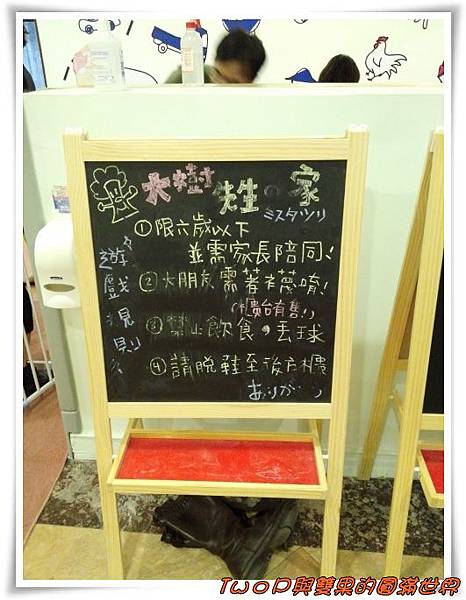 大樹先生の家
ミスタツリ
遊戲規則
①限六歲以下
並需家長陪同!
②大朋友需著襪唷!
(櫃台有售!)
③禁止飲食,丟球
④請脫鞋至後方櫃
ありが
TwoP與雙果的圓滿世界